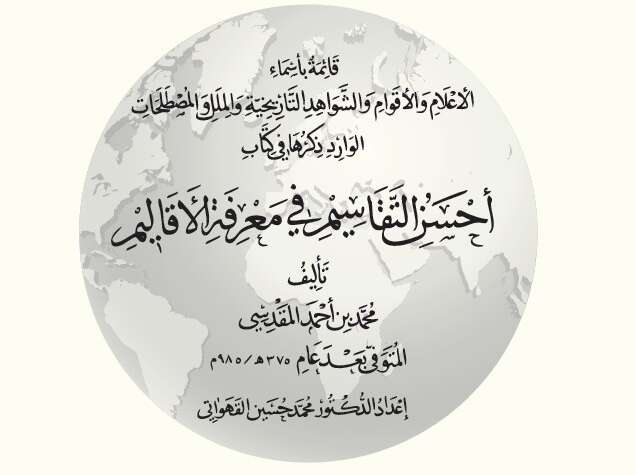 قَائِمَةٌ بأَسْمَاءِ
الأَعْلَامِ وَالأَقوَامِ وَالشَّوَاهِدِ التَّارِيخِيَّةِ وَالمِلَلِ وَالمُصْطَلَحَاتِ
الوَارِدِ ذِكرُهَا فِي كِتَّابِ
أَحْسَنُ التَّقَاسِيْمِ فِي مَعْرِفَةِ الأَقَالِيْمِ
تَأْلِيفُ
مُحَمَّد بن أَحْمَد المَقْدِسِيّ
المُتَوَفّى بَعْدَ عَامِ ٣٧٥هـ/٩٨٥م
إِعْدَادُ الدُّكْتُورُ مُحَمَّد حُسَين القَهْوَاتِي